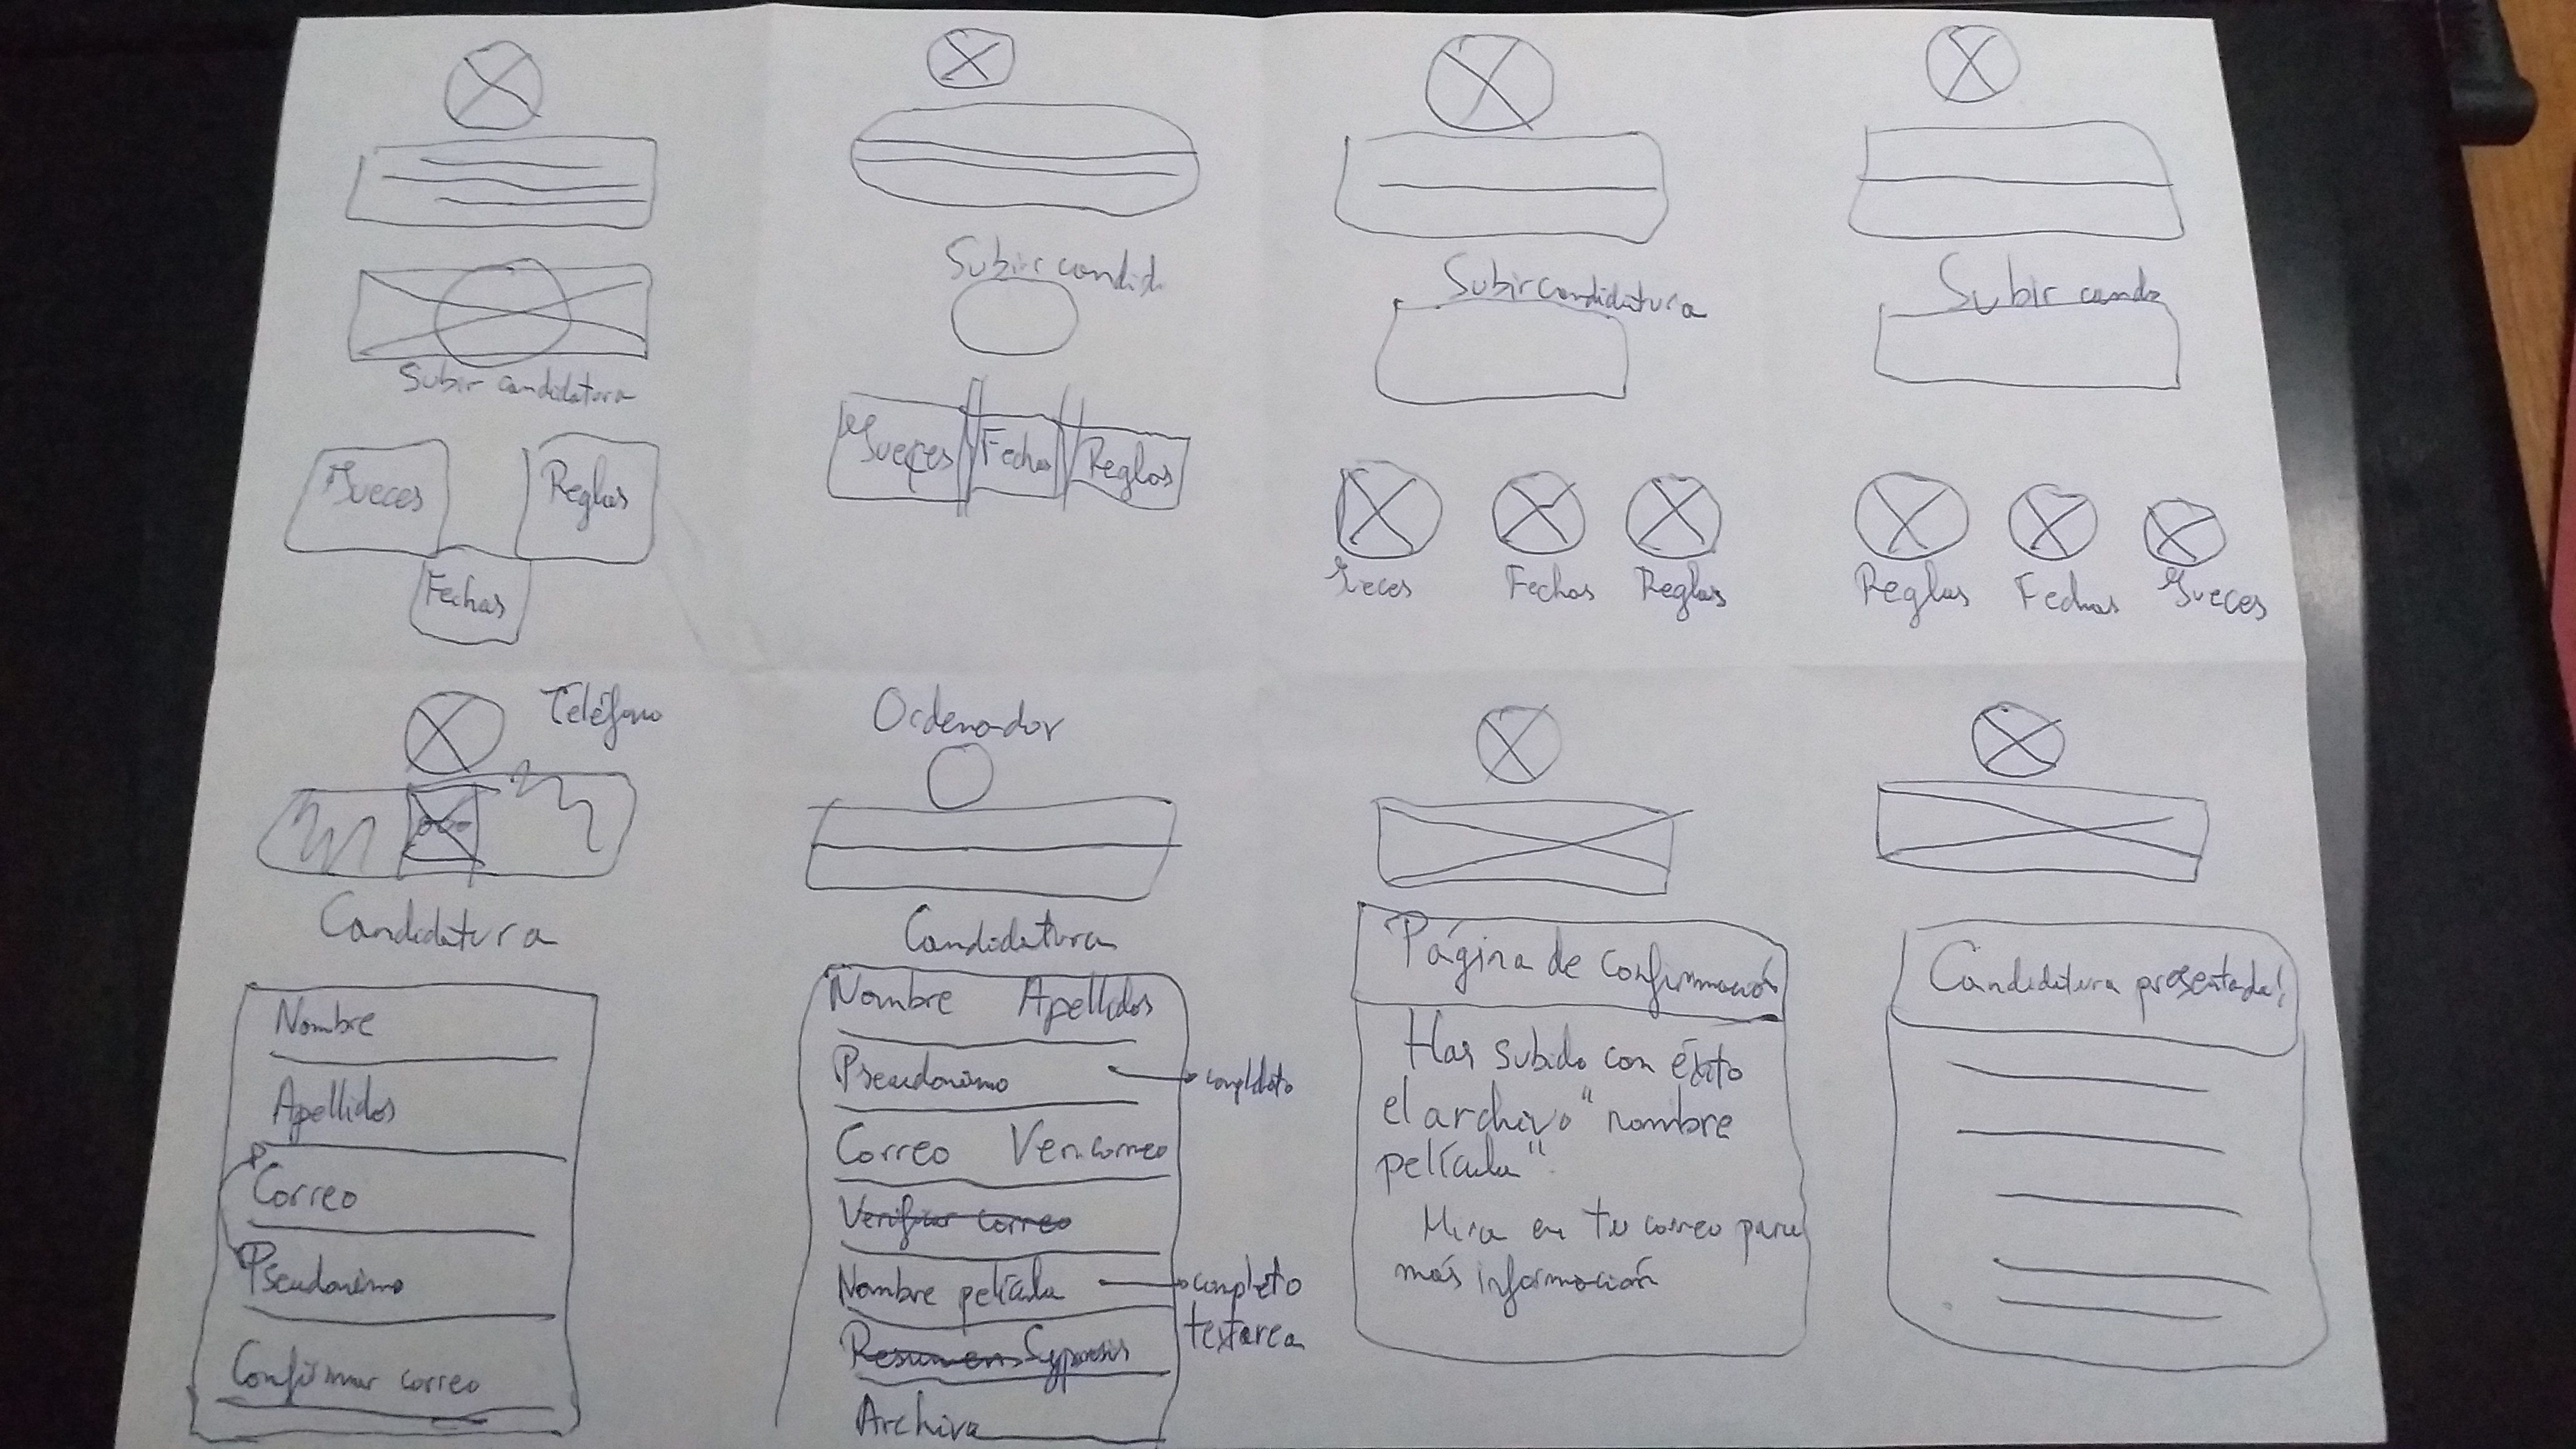 Subir candidatura
Jueces
Reglas
Fechas
Subir candid
Jueces
Fechas
Reglas
Subir candidatura
Jueces
Fechas
Reglas
Subir cand
Reglas
Fechas
Jueces
Teléfono
Candidatura
Nombre
Apellidos
Correo
Pseudonimo
Confirmar correo
Ordenador
Candidatura
Nombre Apellidos
Pseudonimo
completo
Correo Veri correo
Verificar correo
Nombre película
completo
textarea
Resumen
Archivo
Página de confirmación
Has subido con éxito
el archivo "nombre
película".
Mira en tu correo para
más información
Candidatura presentada!